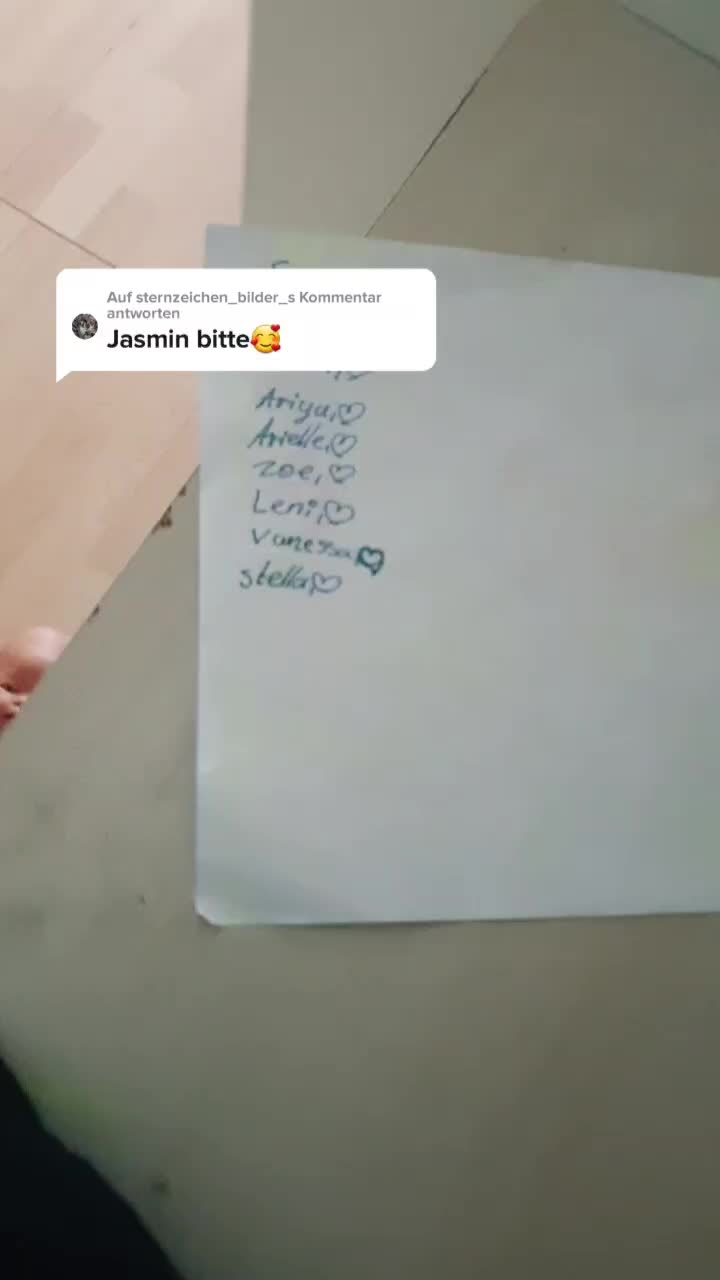 Auf sternzeichen_bilder_s Kommentar
antworten
Jasmin bitte🥰
Ariya,♡
Arielle,♡
Zoe,♡
Leni,♡
Vanessa♡
stella,♡